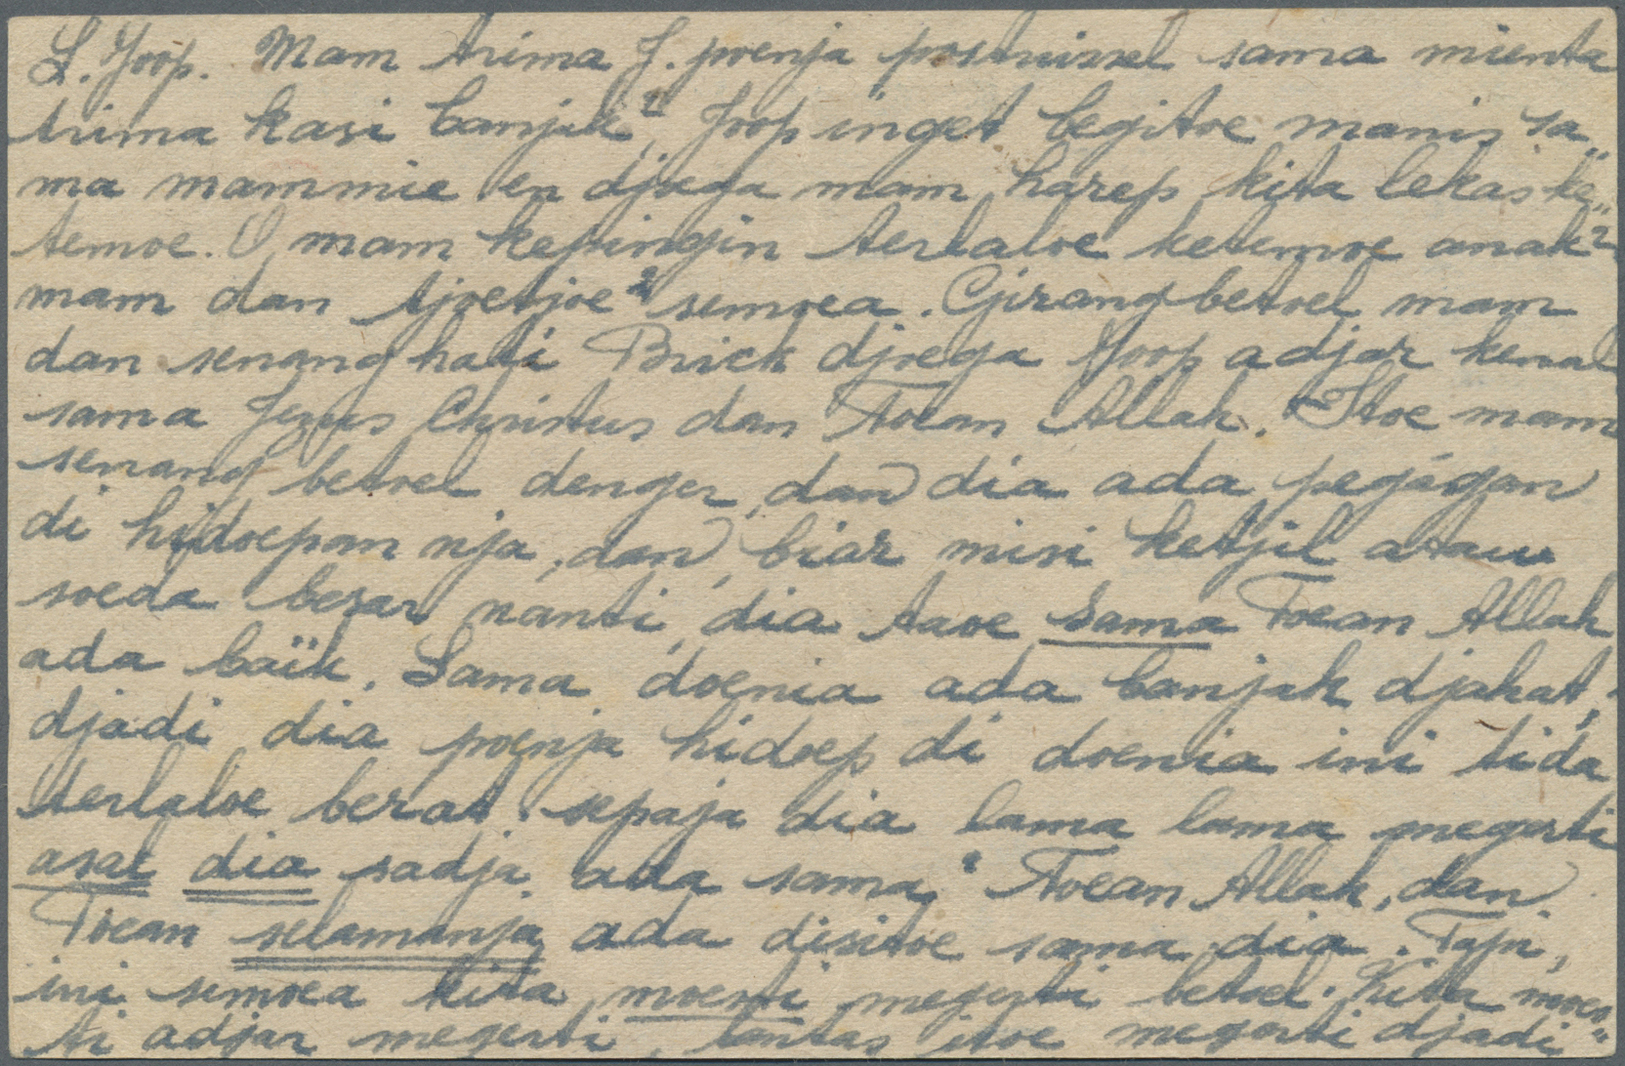 L. Joop. Mam trima J. poenja postwissel sama mienta
trima kasi banjak², Joop inget begitoe manis sa„
ma mammie en djoega mam harep kita lekas ke„
temoe. O, mam kepingin terlaloe ketemoe anak²
mam dan tjoetjoe² semoea. Girang betoel mam
dan senang hati Brick djoega Joop adjar kenal
sama Jezus Christus dan Toean Allah. Itoe mam
senang betoel denger, dan dia ada pegágan
di hidoepan nja, dan, biar misi ketjil atau
soeda besar nanti dia taoe sama Toean Allah
ada baïk. Sama doenia ada banjak djahat,
djadi dia poenja hidoep di doenia ini tida
terlaloe berat sepaja dia lama lama megerti
asal dia sadja ada sama² Toean Allah, dan
Toean selamanja ada disitoe sama dia. Tapi,
ini semoea kita moesti megerti betoel. Kita moes„
ti adjar megerti, lantas itoe megerti djadi„